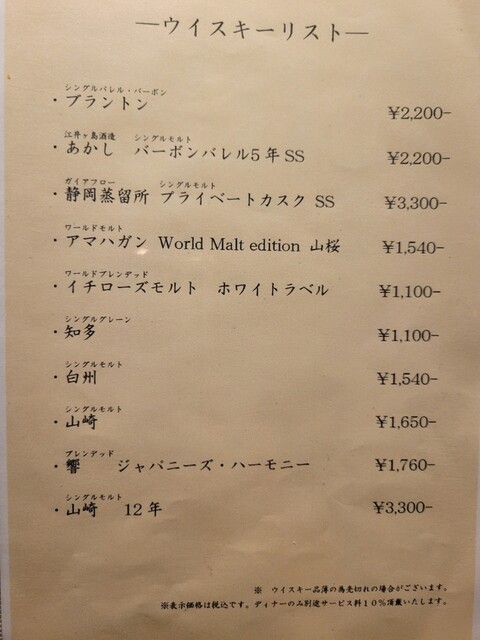 ―ウイスキーリスト―
シングルバレル・バーボン
・ブラントン ¥2,200-
江井ヶ島酒造 シングルモルト
・あかし バーボンバレル5年 SS ¥2,200-
ガイアフロー シングルモルト
・静岡蒸留所 プライベートカスク SS ¥3,300-
ワールドモルト
・アマハガン World Malt edition 山桜 ¥1,540-
ワールドブレンデッド
・イチローズモルト ホワイトラベル ¥1,100-
シングルグレーン
・知多 ¥1,100-
シングルモルト
・白州 ¥1,540-
シングルモルト
・山崎 ¥1,650-
ブレンデッド
・響 ジャパニーズ・ハーモニー ¥1,760-
シングルモルト
・山崎 12年 ¥3,300-
※ ウイスキー品薄の為売切れの場合がございます。
※表示価格は税込です。ディナーのみ別途サービス料10%頂戴いたします。